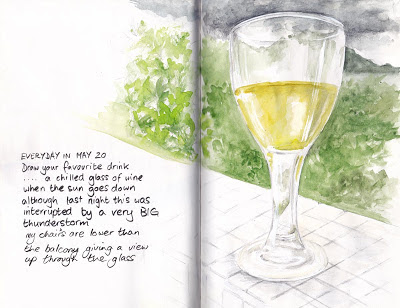 EVERYDAY IN MAY 20
Draw your favourite drink
.... a chilled glass of wine
when the sun goes down
although last night this was
interrupted by a very BIG
thunderstorm
my chairs are lower than
the balcony giving a view
up through the glass